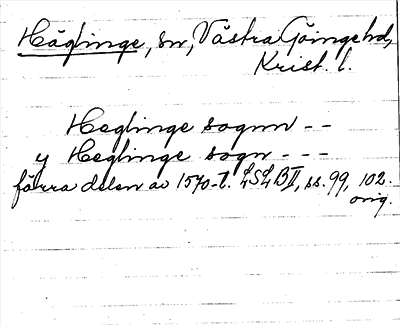 Häglinge, sn, Västra Göinge hd,
Krist. l.
Heglinge sognn --
y Heglinge sogn ---
förra delen av 1570-t. LSLB II, ss. 99, 102.
orig.